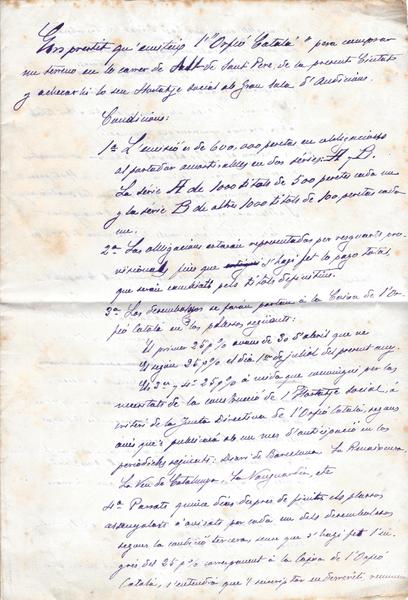 Empréstit qu'emiteix l'"Orfeó Català" pera comprar
un terreno en lo carrer de Alt de Sant Pere, de la present Ciutat
y adecuarhi lo seu Hostatje social ab Gran Sala d'Audicions.
Condicions:
1ª L'emisió es de 600,000 pesetas en obligacions
al portador amortisables en dos series: A y B.
La serie A de 1000 titols de 500 pesetas cada un
y la serie B de altres 1000 titols de 100 pesetas cada
un.
2ª Las obligacions estaran representadas per resguarts pro-
visionals fins que s'hagi fet lo pago total,
que seran cambiats pels titols definitius.
3ª Los desembolsos se faran portant á la Caixa de l'Or-
feó Català en los plassos següents:
El primer 25 p% avans de 30 d'abril que ve
El segon 25 p% el dia 1er de juliol del present any.
El 3er y 4t 25 p% á mida que convingui per las
necesitats de la construcció de l'Hostatje social, á
criteri de la Junta Directiva de l'Orfeó Català, segons
avis que's publicará ab un mes d'anticipació en los
periódichs següents: Diari de Barcelona, La Renaixensa,
La Veu de Catalunya, La Vanguardia, etc
4ª Passats quinze dias després de finits els plassos
assenyalats ó avisats per cada un dels desembolsos
segons la condició tercera, sense que s'hagi fet l'in-
grés del 25 p% corresponent á la Caixa de l'Orfeó
Català, s'entendrá que'l suscriptor en descrèdit, renuncia